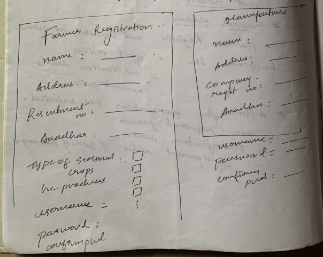 Farmer Registration
name :
Address :
Recruitment
no :
Aadhar :
Type of seasonal :
crops
he produces
username :
password :
confirm pwd
Manufacturer
name :
Address :
Company
regist no :
Aadhar :
username :
password :
confirm
pwd :